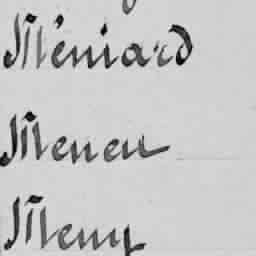 Méniard
Meneu
Meny